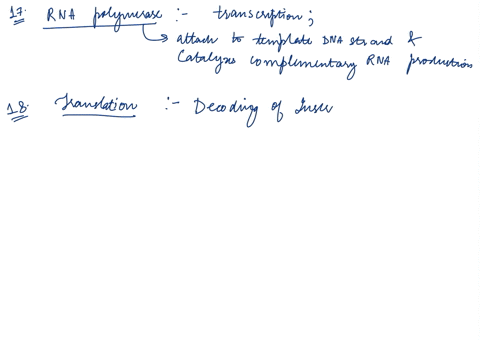 17. RNA polymerase :- transcription;
attach to template DNA strand &
Catalyses complementary RNA production
18. Translation :- Decoding of Instr